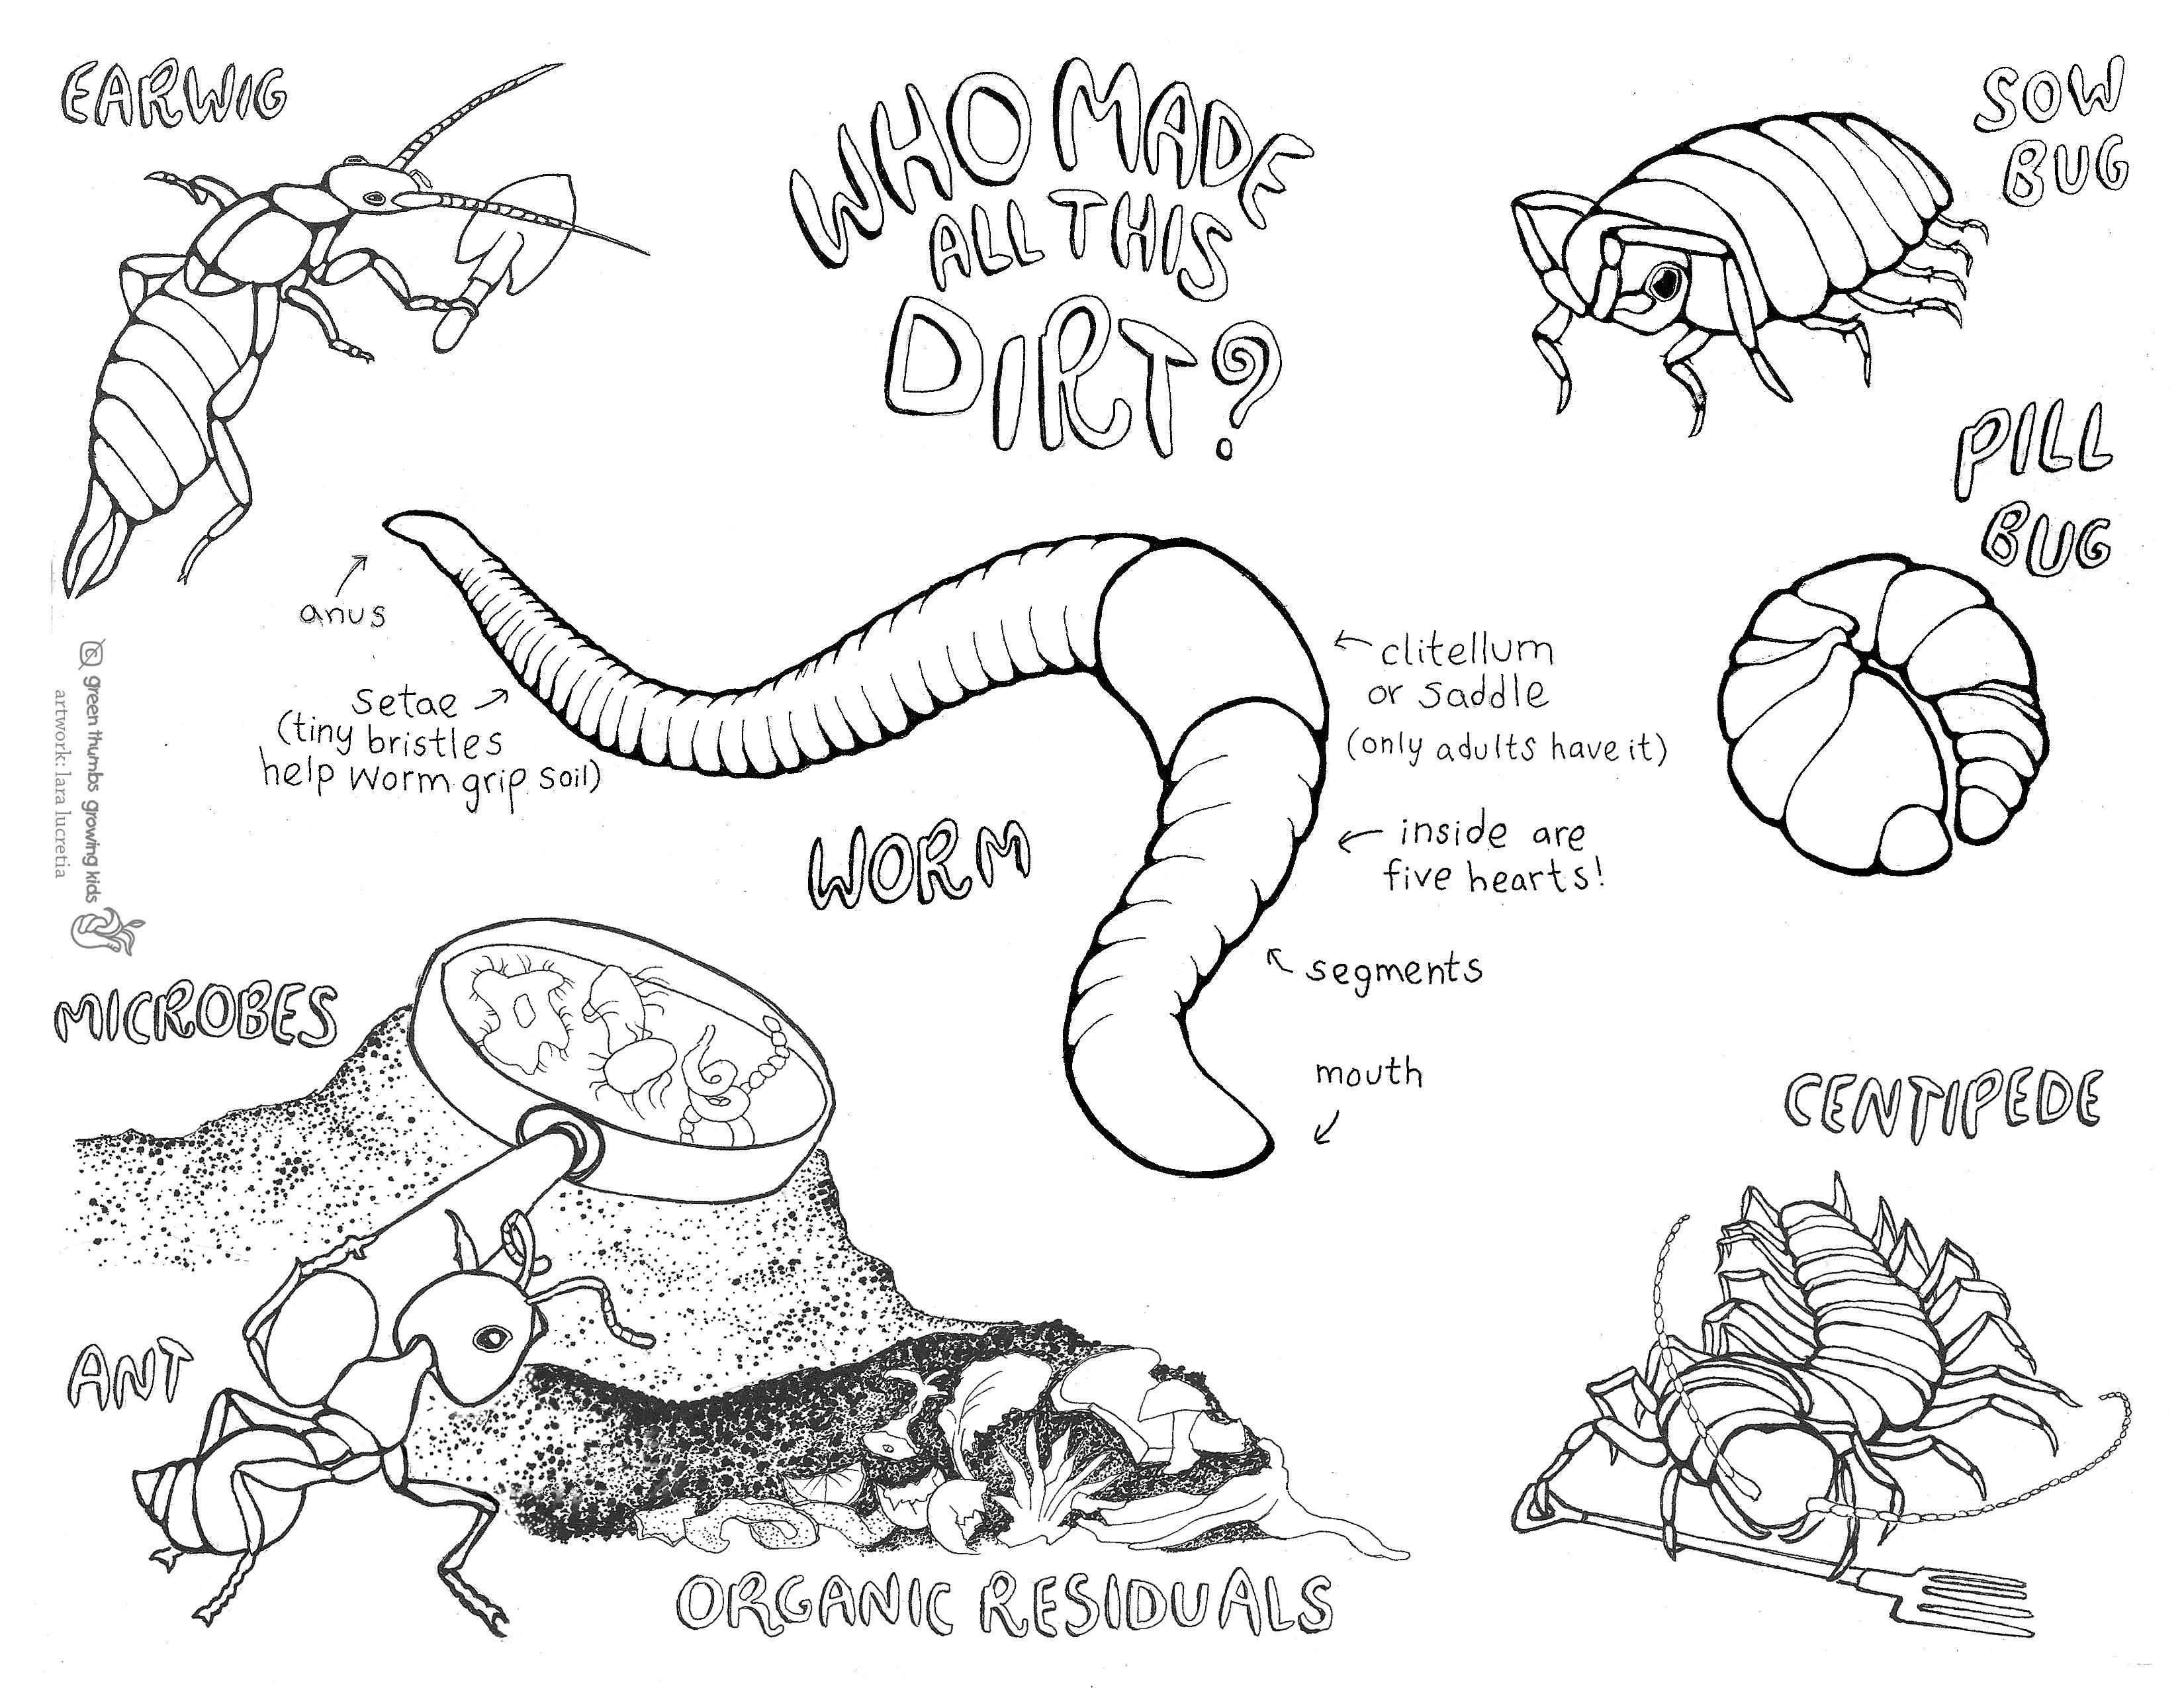 EARWIG
WHO MADE
ALL THIS
DIRT?
SOW
BUG
PILL
BUG
anus
setae
(tiny bristles
help worm grip soil)
clitellum
or saddle
(only adults have it)
inside are
five hearts!
segments
mouth
WORM
green thumbs growing kids
artwork: lara lucretia
MICROBES
ANT
CENTIPEDE
ORGANIC RESIDUALS